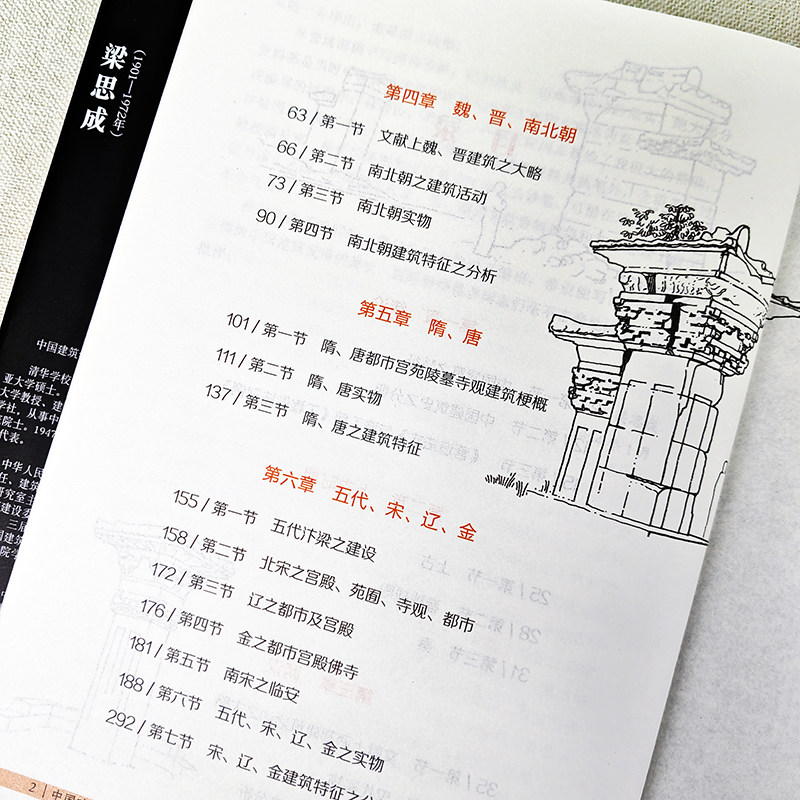 梁思成
(1901—1972年)
中国建筑
清华学校
亚大学硕士。
大学教授，建
学社，从事中
院士。1947
代表。
中华人民
任、建筑
研究室主
建设委
三届
国建筑
院学
第四章 魏、晋、南北朝
63 / 第一节 文献上魏、晋建筑之大略
66 / 第二节 南北朝之建筑活动
73 / 第三节 南北朝实物
90 / 第四节 南北朝建筑特征之分析
第五章 隋、唐
101 / 第一节 隋、唐都市宫苑陵墓寺观建筑梗概
111 / 第二节 隋、唐实物
137 / 第三节 隋、唐之建筑特征
第六章 五代、宋、辽、金
155 / 第一节 五代汴梁之建设
158 / 第二节 北宋之宫殿、苑囿、寺观、都市
172 / 第三节 辽之都市及宫殿
176 / 第四节 金之都市宫殿佛寺
181 / 第五节 南宋之临安
188 / 第六节 五代、宋、辽、金之实物
292 / 第七节 宋、辽、金建筑特征之分
2 | 中国